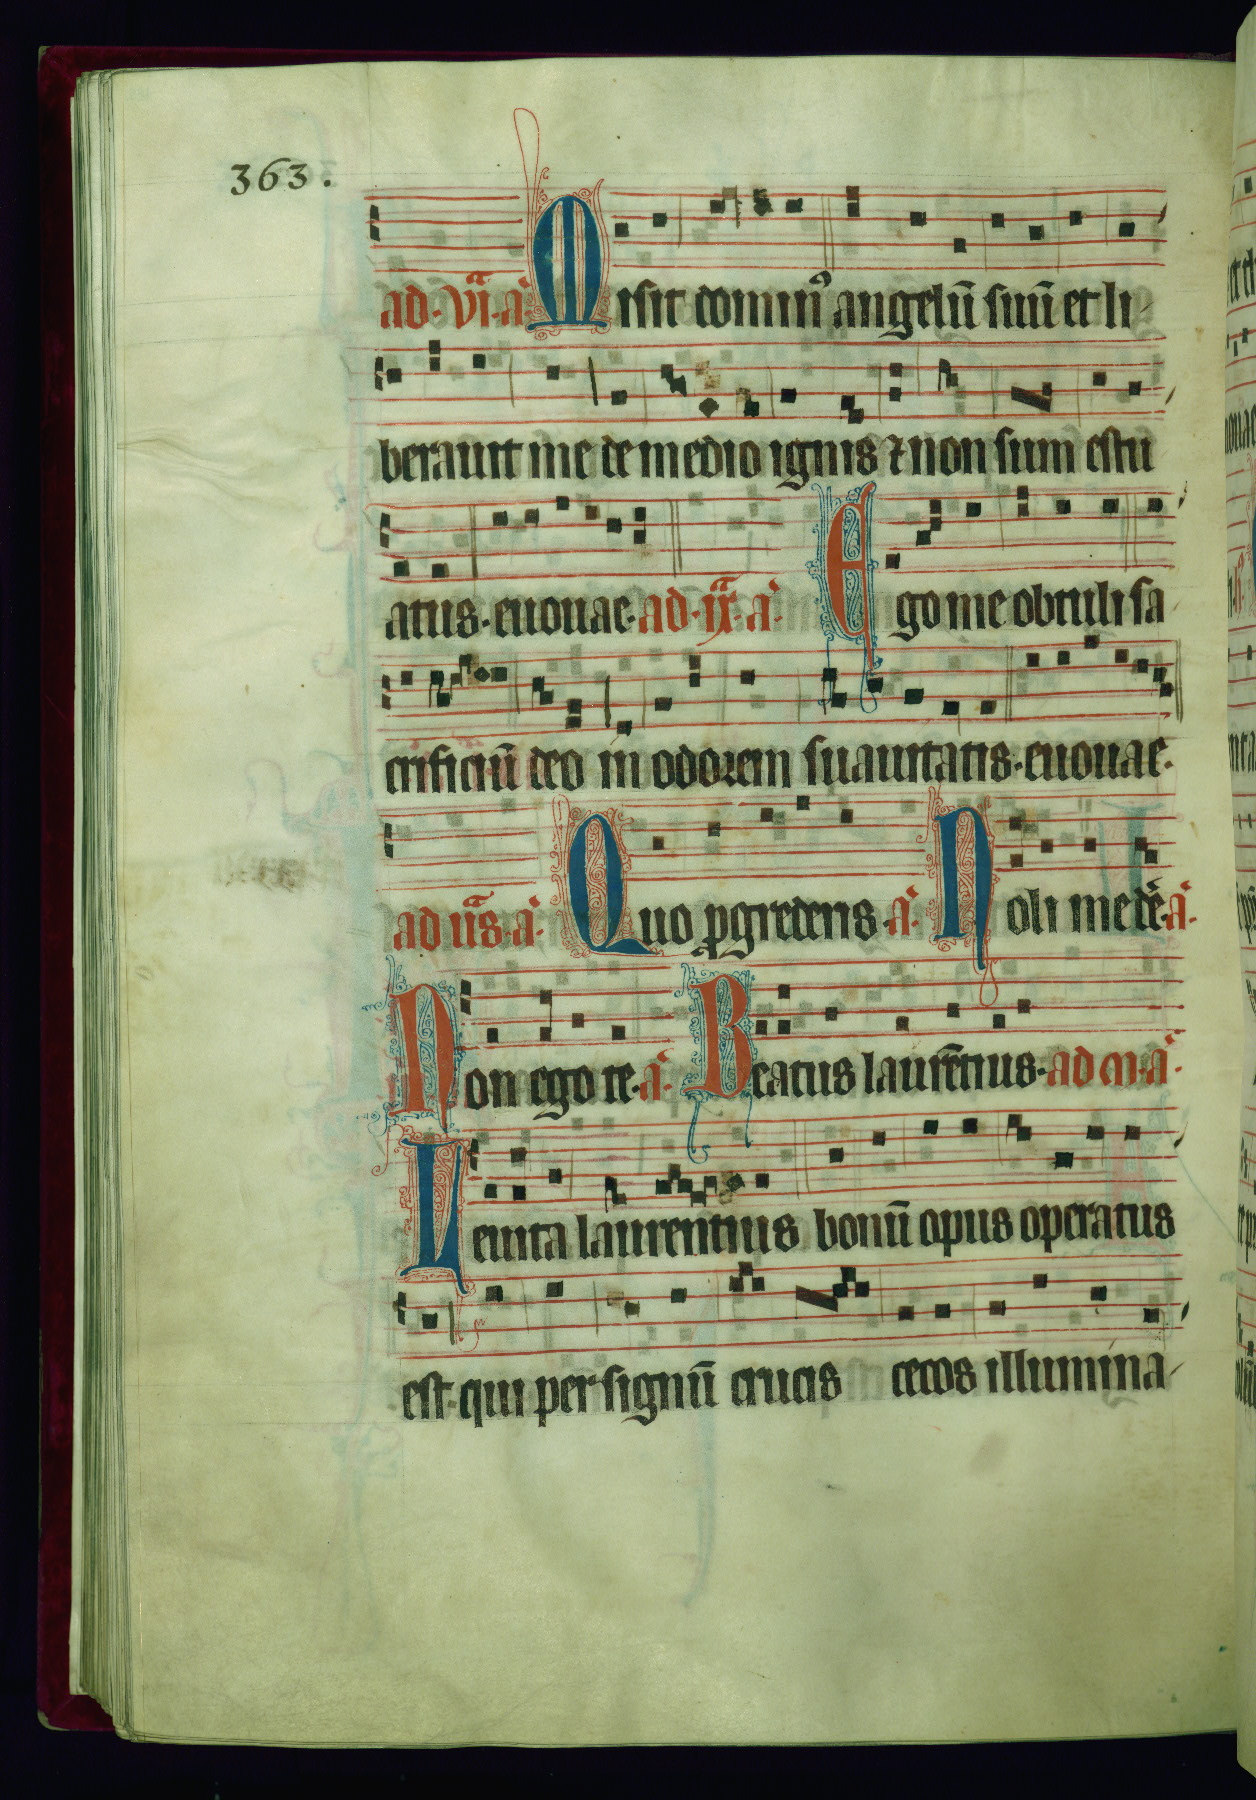 363.
ad · vi̅a · a̅ Misit domin᷒ angelū suū et li-
berauit me de medio ignis ⁊ non sum estu
atus · euouae · ad · ix̅a · a̅ · Ego me obtuli sa
crificiū deo in odorem suauitatis · euouae ·
ad us̅ · a̅ · Quo p̱grederis · a̅ · Noli me dē · a̅ ·
Non ego te · a̅ · Beatus laurētius · ad m · a̅ ·
Leuita laurentius bonū opus operatus
est · qui per signū crucis cecos illumina-